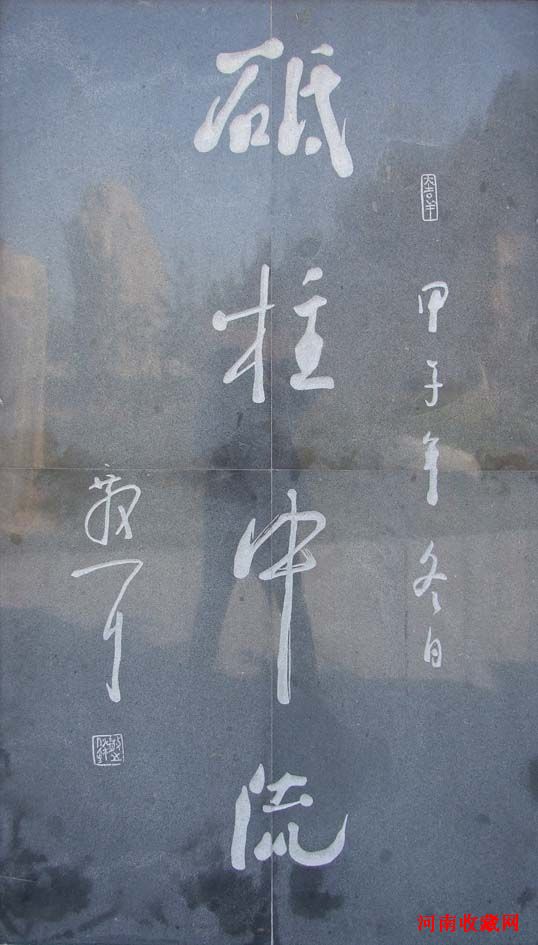 大吉羊
甲子年冬日
砥柱中流
河南收藏网